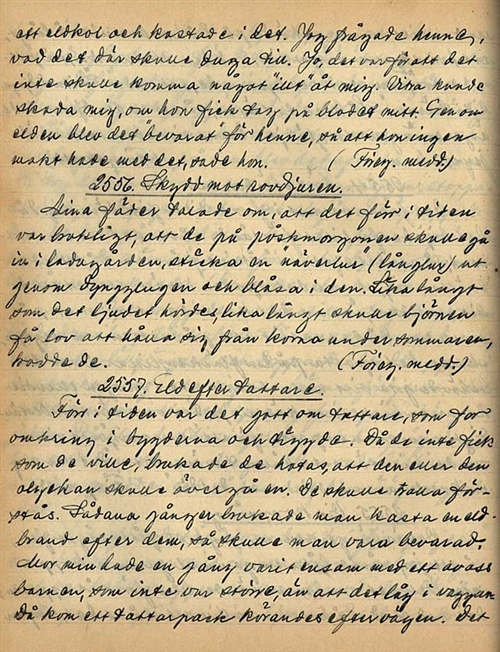 ett eldkol och kastade i det. Jag frågade henne,
vad det där skulle duga till. Jo, det var för att det
inte skulle komma något "illt" åt mig. Vitra kunde
skada mig, om hon fick tag på blodet mitt. Genom
elden blev det "bevarat" för henne, så att hon ingen
makt hade med det, sade hon. (Föreg. medd.)
2556. Skydd mot rovdjuren.
Mina fäder talade om, att det förr i tiden
var brukligt, att de på påskmorgonen skulle gå
in i ladugården, sticka en näverlur (långlur) ut
genom dyngglugen och blåsa i den. Lika långt
som det ljudet hördes, lika långt skulle björnen
få lov att hålla sig från korna under sommaren,
trodde de. (Föreg. medd.)
2557. Eld efter tattare.
Förr i tiden var det gott om tattare, som for
omkring i bygderna och tiggde. Då de inte fick
som de ville, brukade de hotas, att den eller den
olyckan skulle övergå en. De skulle trolla för-
stås. Sådana gånger brukade man kasta en eld-
brand efter dem, så skulle man vara bevarad.
Mor min hade en gång varit ensam med ett av oss
barnen, som inte var större, än att det låg i vaggan.
Då kom ett tattarpack körandes efter vägen. Det